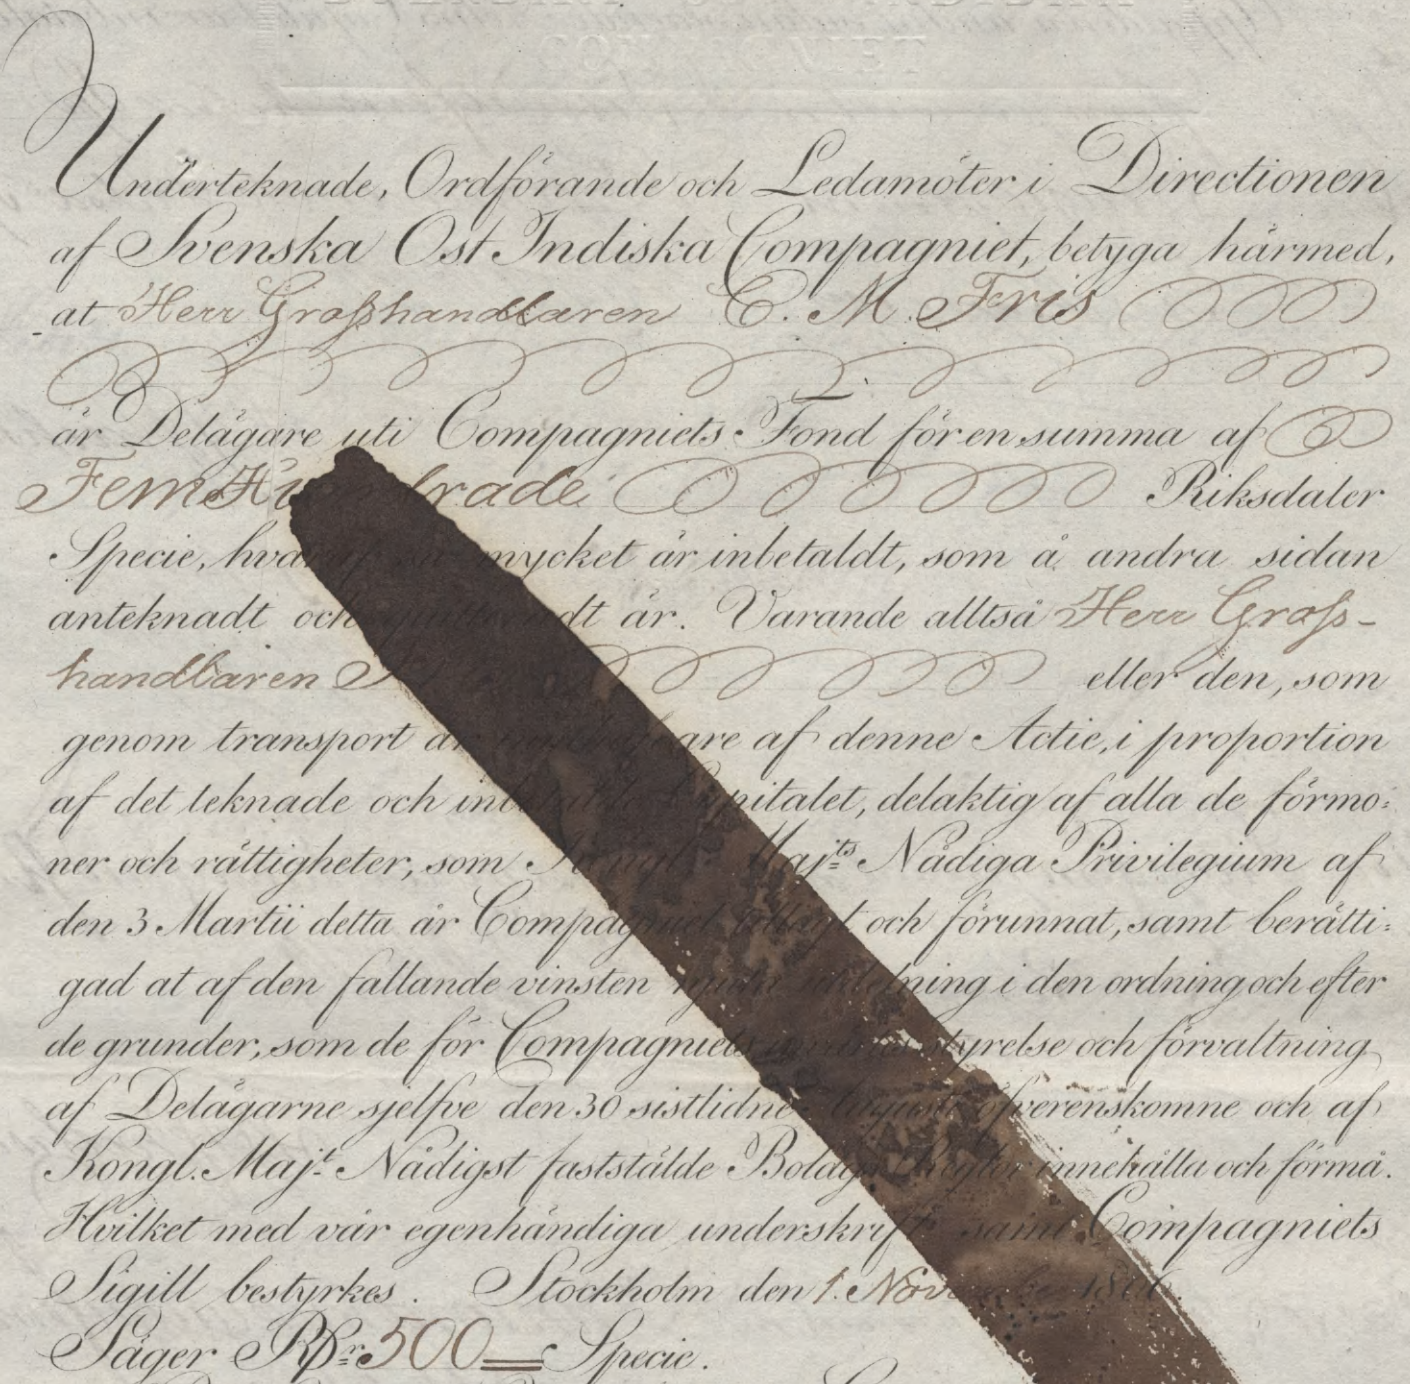 COMPAGNIET
Underteknade, Ordförande och Ledamöter i Directionen
af Svenska Ost Indiska Compagniet, betyga härmed,
at Herr Großhandlaren C. M. Fris
är Delägare uti Compagniets Fond för en summa af
Fem Hundrade Riksdaler
Specie, hvaraf så mycket är inbetaldt, som å andra sidan
anteknadt och är. Varande alltså Herr Groß-
handlaren eller den, som
genom transport är af denne Actie, i proportion
af det teknade och inbetalde Capitalet, delaktig af alla de förmo:
ner och rättigheter, som Kongl. Maj:ts Nådiga Privilegium af
den 3 Martii detta år Compagniet tillagt och förunnat, samt berätti:
gad at af den fallande vinsten njuta utdelning i den ordning och efter
de grunder, som de för Compagniets styrelse och förvaltning
af Delägarne sjelfve den 30 sistlidne Augusti öfverenskomne och af
Kongl. Maj:t Nådigst fastställde Bolags Reglor innehålla och förmå.
Hvilket med vår egenhändiga underskrift samt Compagniets
Sigill bestyrkes. Stockholm den 1. November 1806.
Säger Rdr 500 Specie.